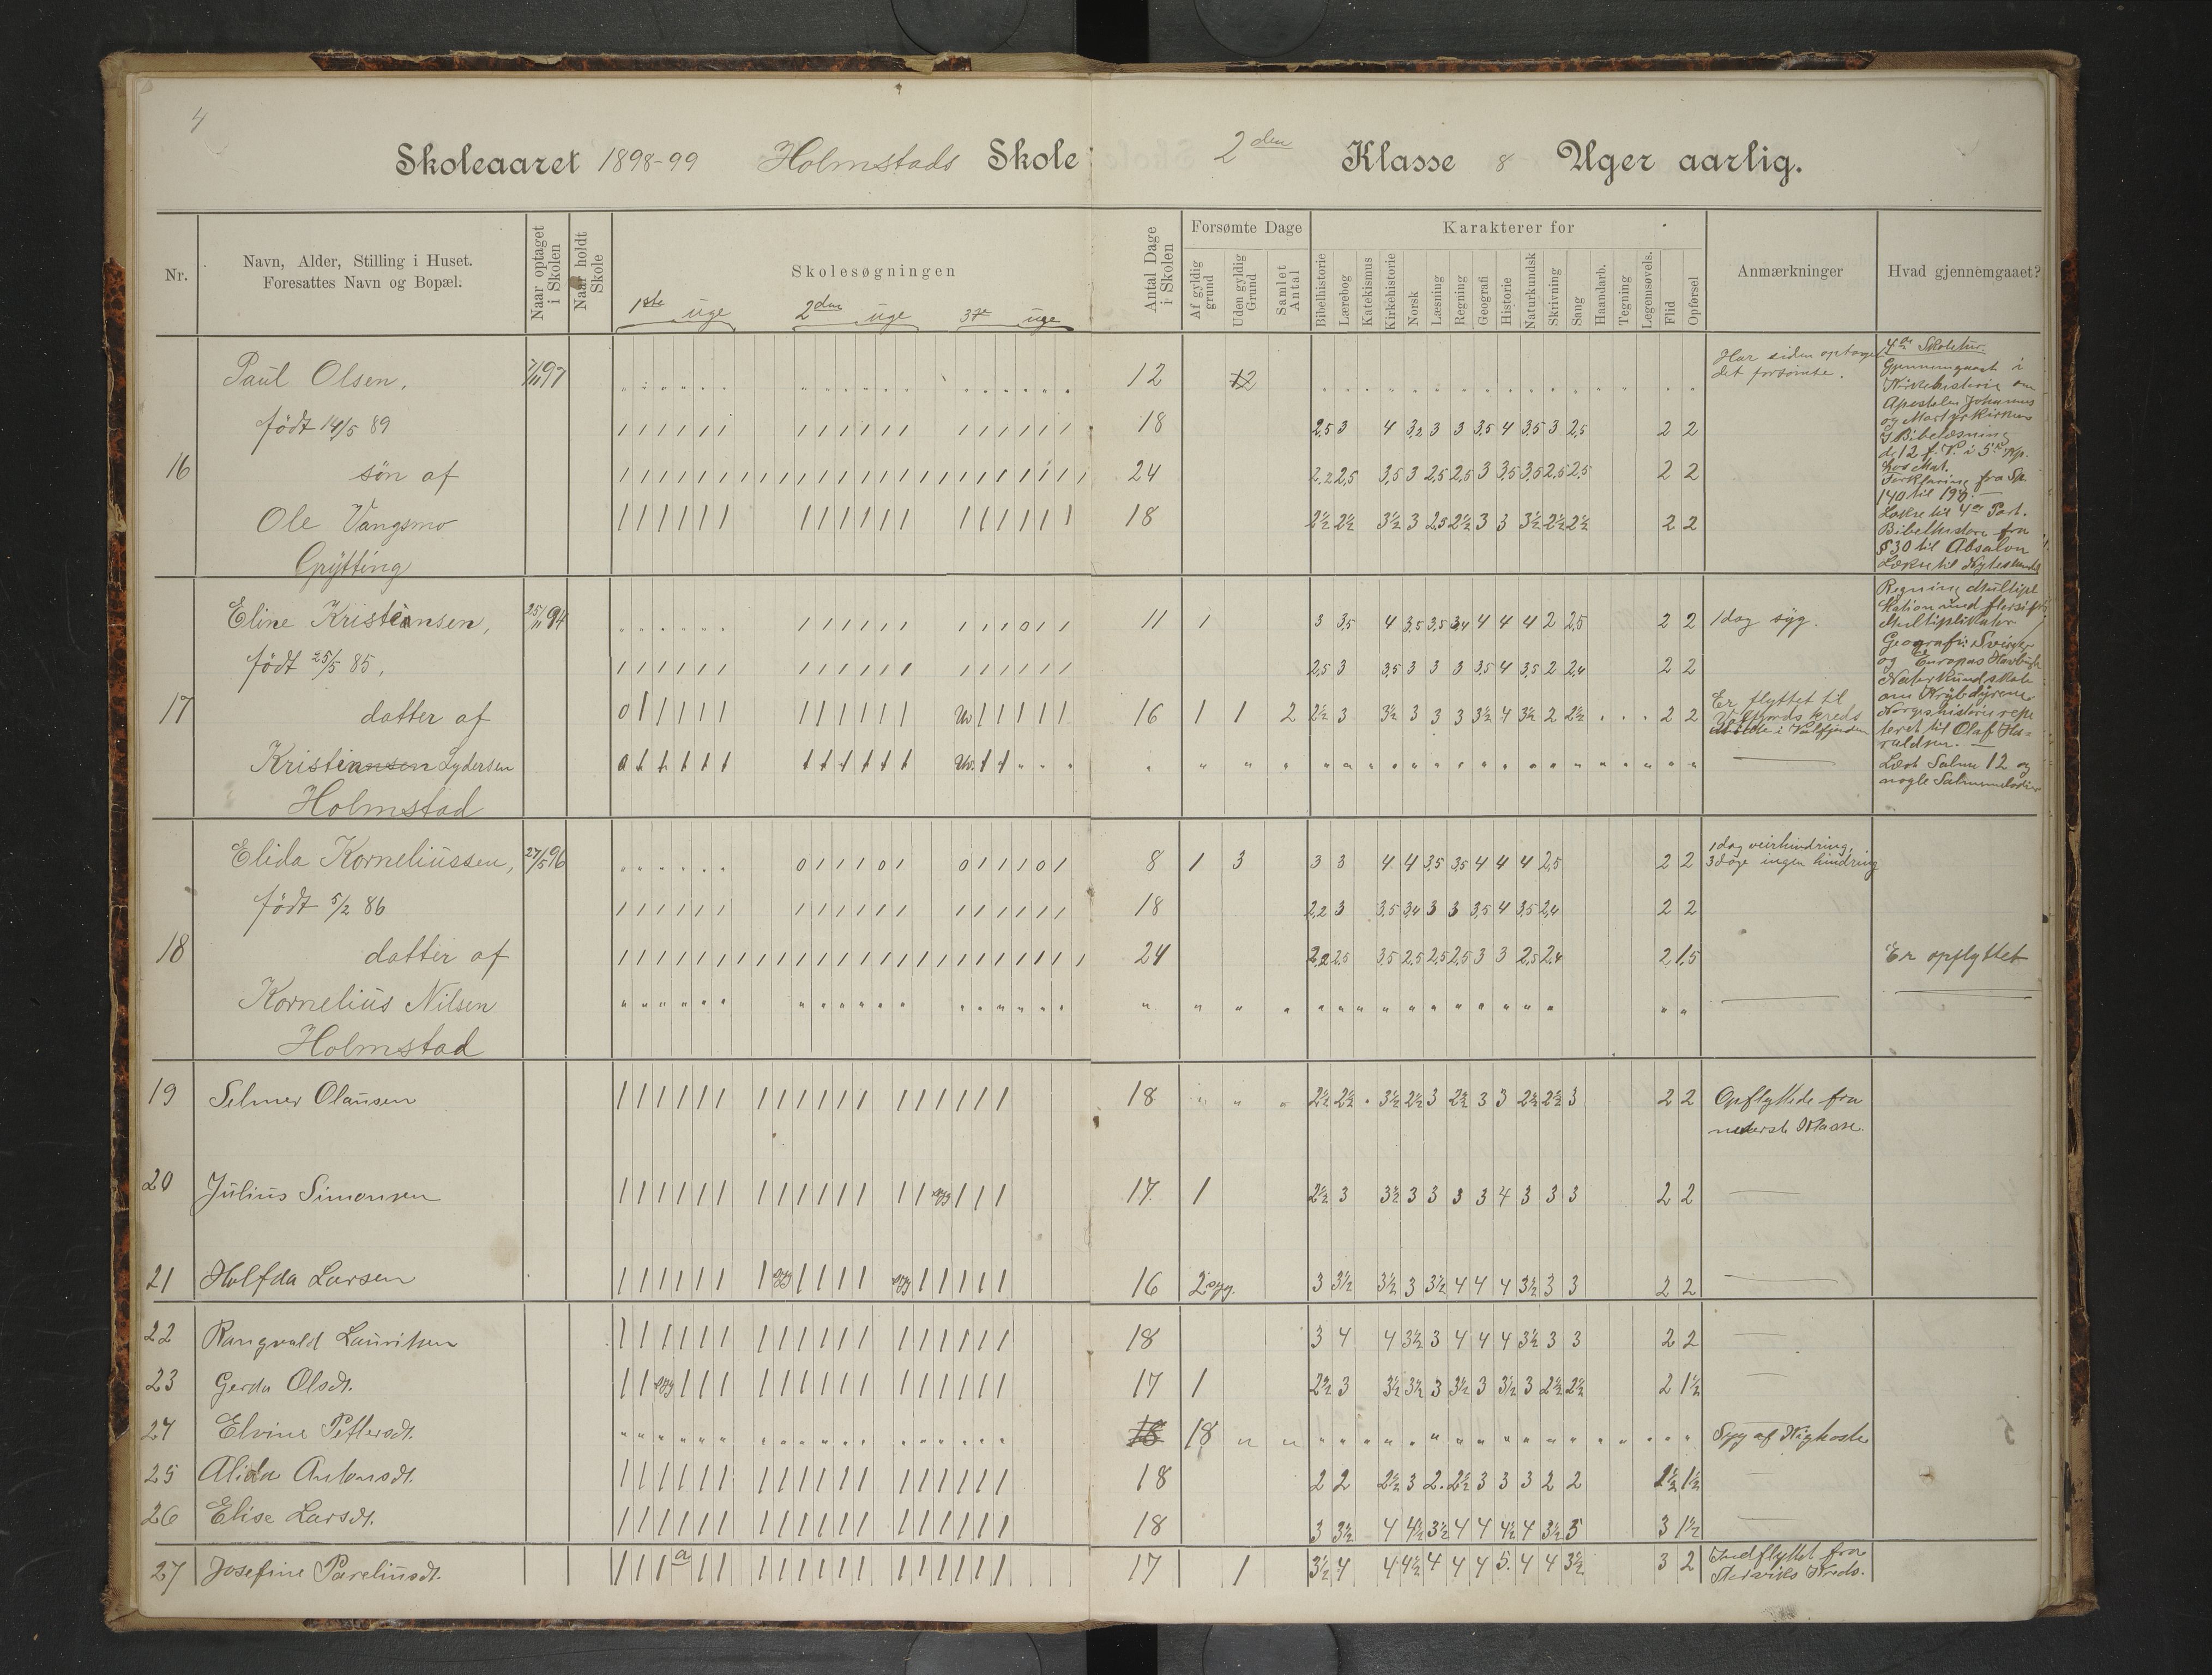 4
Skoleaaret 1898-99 Holmstads Skole 2den Klasse 8 Uger aarlig.
Nr.
Navn, Alder, Stilling i Huset.
Foresattes Navn og Bopæl.
Naar optaget i Skolen
Naar holdt Skole
Skolesøgningen
1ste uge 2den uge 3die uge
Antal Dage i Skolen
Forsømte Dage
Af gyldig grund
Uden gyldig Grund
Samlet Antal
Karakterer for
Bibelhistorie Lærebog Katekismus Kirkehistorie Norsk Læsning Regning Geografi Historie Naturkundsk Skrivning Sang Haandarb. Tegning Legemsøvels. Flid Opførsel
Anmærkninger
Hvad gjennemgaaet?
16
Paul Olsen, 7/11 97 12 12 Har siden optaget
det forsømte.
født 14/5 89 18 2,5 3 4 3,2 3 3 3,5 4 3,5 3 2,5 2 2
søn af 24 2,2 2,5 3,5 3 2,5 2,5 3 3,5 3,5 2,5 2,5 2 2
Ole Vangsmo 18 2½ 2½ 3½ 3 2,5 2½ 3 3 3½ 2½ 2½ 2 2
Grytting
4de Skoletur.
Gjennemgaaet i
Kirkehistorie om
Apostelen Johannes
og Martyrkirken
I Bibellæsning
Forklaring fra Sp.
140 til 190. —
Lekse til 4de Part.
Bibelhistorie fra
§ 30 til Absalon
17
Eline Kristensen, 25/11 94 11 1 3 3,5 4 3,5 3,5 3,4 4 4 4 2 2,5 2 2 1 dag syg.
født 25/5 85, 2,5 3 3,5 3 3 3 3,5 4 3,5 2 2,4 2 2
datter af 16 1 1 2 2½ 3 3½ 3 3 3 3½ 4 3½ 2 2½ 2 2 Er flyttet til
Kristensen Lydersen
Holmstad
Geografi: Sveits
og Europas
Naturkundskab
om Krybdyrene
Norgeshistorie repe
teret til Olaf Ha-
raldsen. —
Læst Salme 12 og
nogle Salmemelodier
18
Elida Korneliussen, 27/5 96 8 1 3 3 3 4 4 3,5 3,5 4 4 4 2,5 2 2 1 dag veirhindring,
3 dage ingen hindring
født 5/2 86 18 2,2 3 3,5 3,4 3 3 3,5 4 3,5 2,4 2 2
datter af 24 2,2 2,5 3,5 2,5 2,5 2,5 3 3 2,5 2,4 2 1,5 Er opflyttet
Kornelius Nilsen
Holmstad
19 Selmer Olausen 18 2½ 2½ 3½ 2½ 3 2½ 3 3 2½ 2½ 3 2 2 Opflyttede fra
nederste Klasse.
20 Julius Simonsen syg 17. 1 2½ 3 3½ 3 3 3 3 4 3 3 3 2 2
21 Halfda Larsen syg syg 16 2 syg. 3 3½ 3½ 3 3½ 4 4 4 3½ 3 3 2 2
22 Rangvald Lauritsen 18 3 4 4 3½ 3 4 4 4 3½ 3 3 2 2
23 Gerda Olsdt. syg 17 1 2½ 3 3½ 3½ 3 3½ 3 3½ 3 2½ 2½ 2 1½
24 Elvine Pettersdt. 18 18 Syg af Kighoste
25 Alida Antonsdt. 18 2 2 2½ 3 2. 2½ 3 3 3 2 2 1½ 1½
26 Elise Larsdt. 18 3 3½ 4 4½ 3½ 4 4 4½ 4 3½ 5 3 1½
27 Josefine Pareliusdt. a 17 1 3½ 4 4 4½ 4 4 4 5. 4 4 3½ 3 2 Indflyttet fra
Kreds.